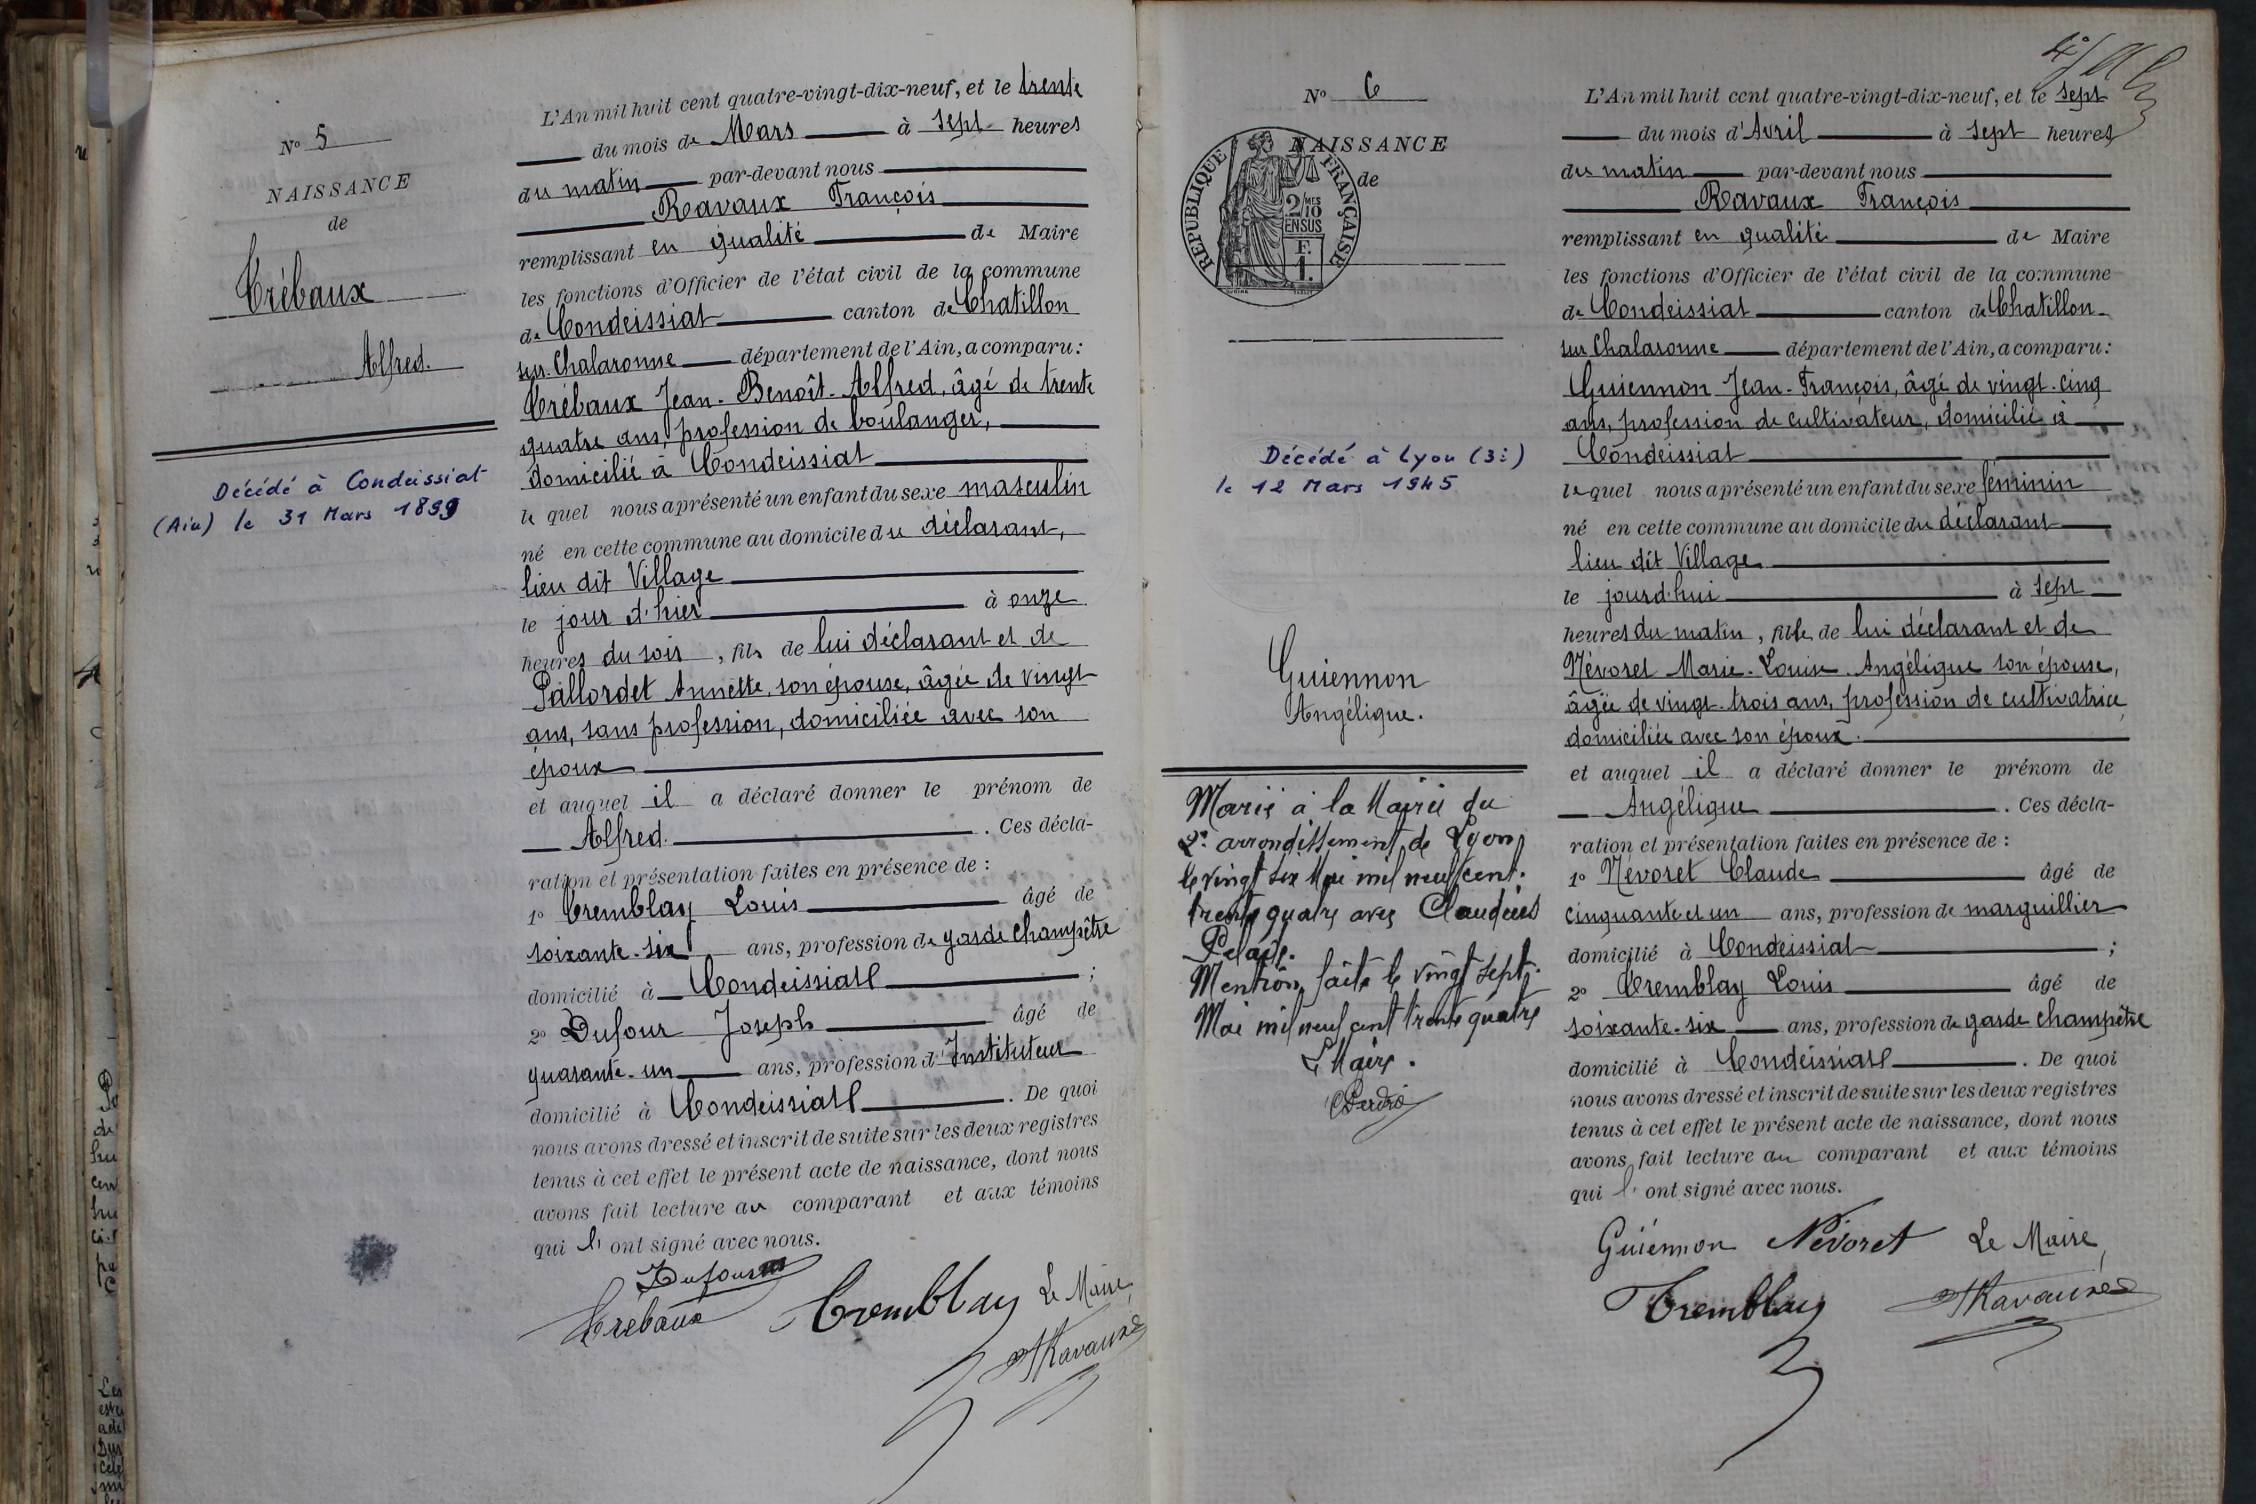 N° 5
NAISSANCE
de
Trébaux
Alfred.
Décédé à Condeissiat
(Ain) le 31 Mars 1899
L'An mil huit cent quatre-vingt-dix-neuf, et le trente
du mois de Mars à sept heures
du matin par-devant nous
Ravaux François
remplissant en qualité de Maire
les fonctions d'Officier de l'état civil de la commune
de Condeissiat canton de Chatillon
sur Chalaronne département de l'Ain, a comparu:
Trébaux Jean-Benoît-Alfred, âgé de trente
quatre ans, profession de boulanger,
domicilié à Condeissiat
le quel nous a présenté un enfant du sexe masculin
né en cette commune au domicile du déclarant,
lieu dit Village
le jour d'hier à onze
heures du soir, fils de lui déclarant et de
Pallordet Annette, son épouse, âgée de vingt
ans, sans profession, domiciliée avec son
époux
et auquel il a déclaré donner le prénom de
Alfred. . Ces décla-
ration et présentation faites en présence de :
1° Tremblay Louis âgé de
soixante-six ans, profession de garde champêtre
domicilié à Condeissiat ;
2° Dufour Joseph âgé de
quarante-un ans, profession d'Instituteur
domicilié à Condeissiat . De quoi
nous avons dressé et inscrit de suite sur les deux registres
tenus à cet effet le présent acte de naissance, dont nous
avons fait lecture au comparant et aux témoins
qui l'ont signé avec nous.
Dufour
Trébaux Tremblay Le Maire,
Ravaux
N° 6
NAISSANCE
de
RÉPUBLIQUE FRANÇAISE
2/10MES
EN SUS
F.
1.
Décédé à Lyon (3e)
le 12 Mars 1945
Guiennon
Angélique.
Marié à la Mairie du
2e arrondissement de Lyon
le vingt six Mai mil neuf cent
trente quatre avec Claudius
Mention faite le vingt sept
Mai mil neuf cent trente quatre
L Maire.
L'An mil huit cent quatre-vingt-dix-neuf, et le sept
du mois d'Avril à sept heures
du matin par-devant nous
Ravaux François
remplissant en qualité de Maire
les fonctions d'Officier de l'état civil de la commune
de Condeissiat canton de Chatillon
sur Chalaronne département de l'Ain, a comparu:
Guiennon Jean-François, âgé de vingt-cinq
ans, profession de cultivateur, domicilié à
Condeissiat
le quel nous a présenté un enfant du sexe féminin
né en cette commune au domicile du déclarant
lieu dit Village
le jourd'hui à sept
heures du matin, fille de lui déclarant et de
Névoret Marie-Louise-Angélique son épouse,
âgée de vingt-trois ans, profession de cultivatrice
domiciliée avec son époux.
et auquel il a déclaré donner le prénom de
Angélique . Ces décla-
ration et présentation faites en présence de :
1° Névoret Claude âgé de
cinquante et un ans, profession de marguillier
domicilié à Condeissiat ;
2° Tremblay Louis âgé de
soixante-six ans, profession de garde champêtre
domicilié à Condeissiat . De quoi
nous avons dressé et inscrit de suite sur les deux registres
tenus à cet effet le présent acte de naissance, dont nous
avons fait lecture au comparant et aux témoins
qui l'ont signé avec nous.
Guiennon Névoret Le Maire,
Tremblay Ravaux